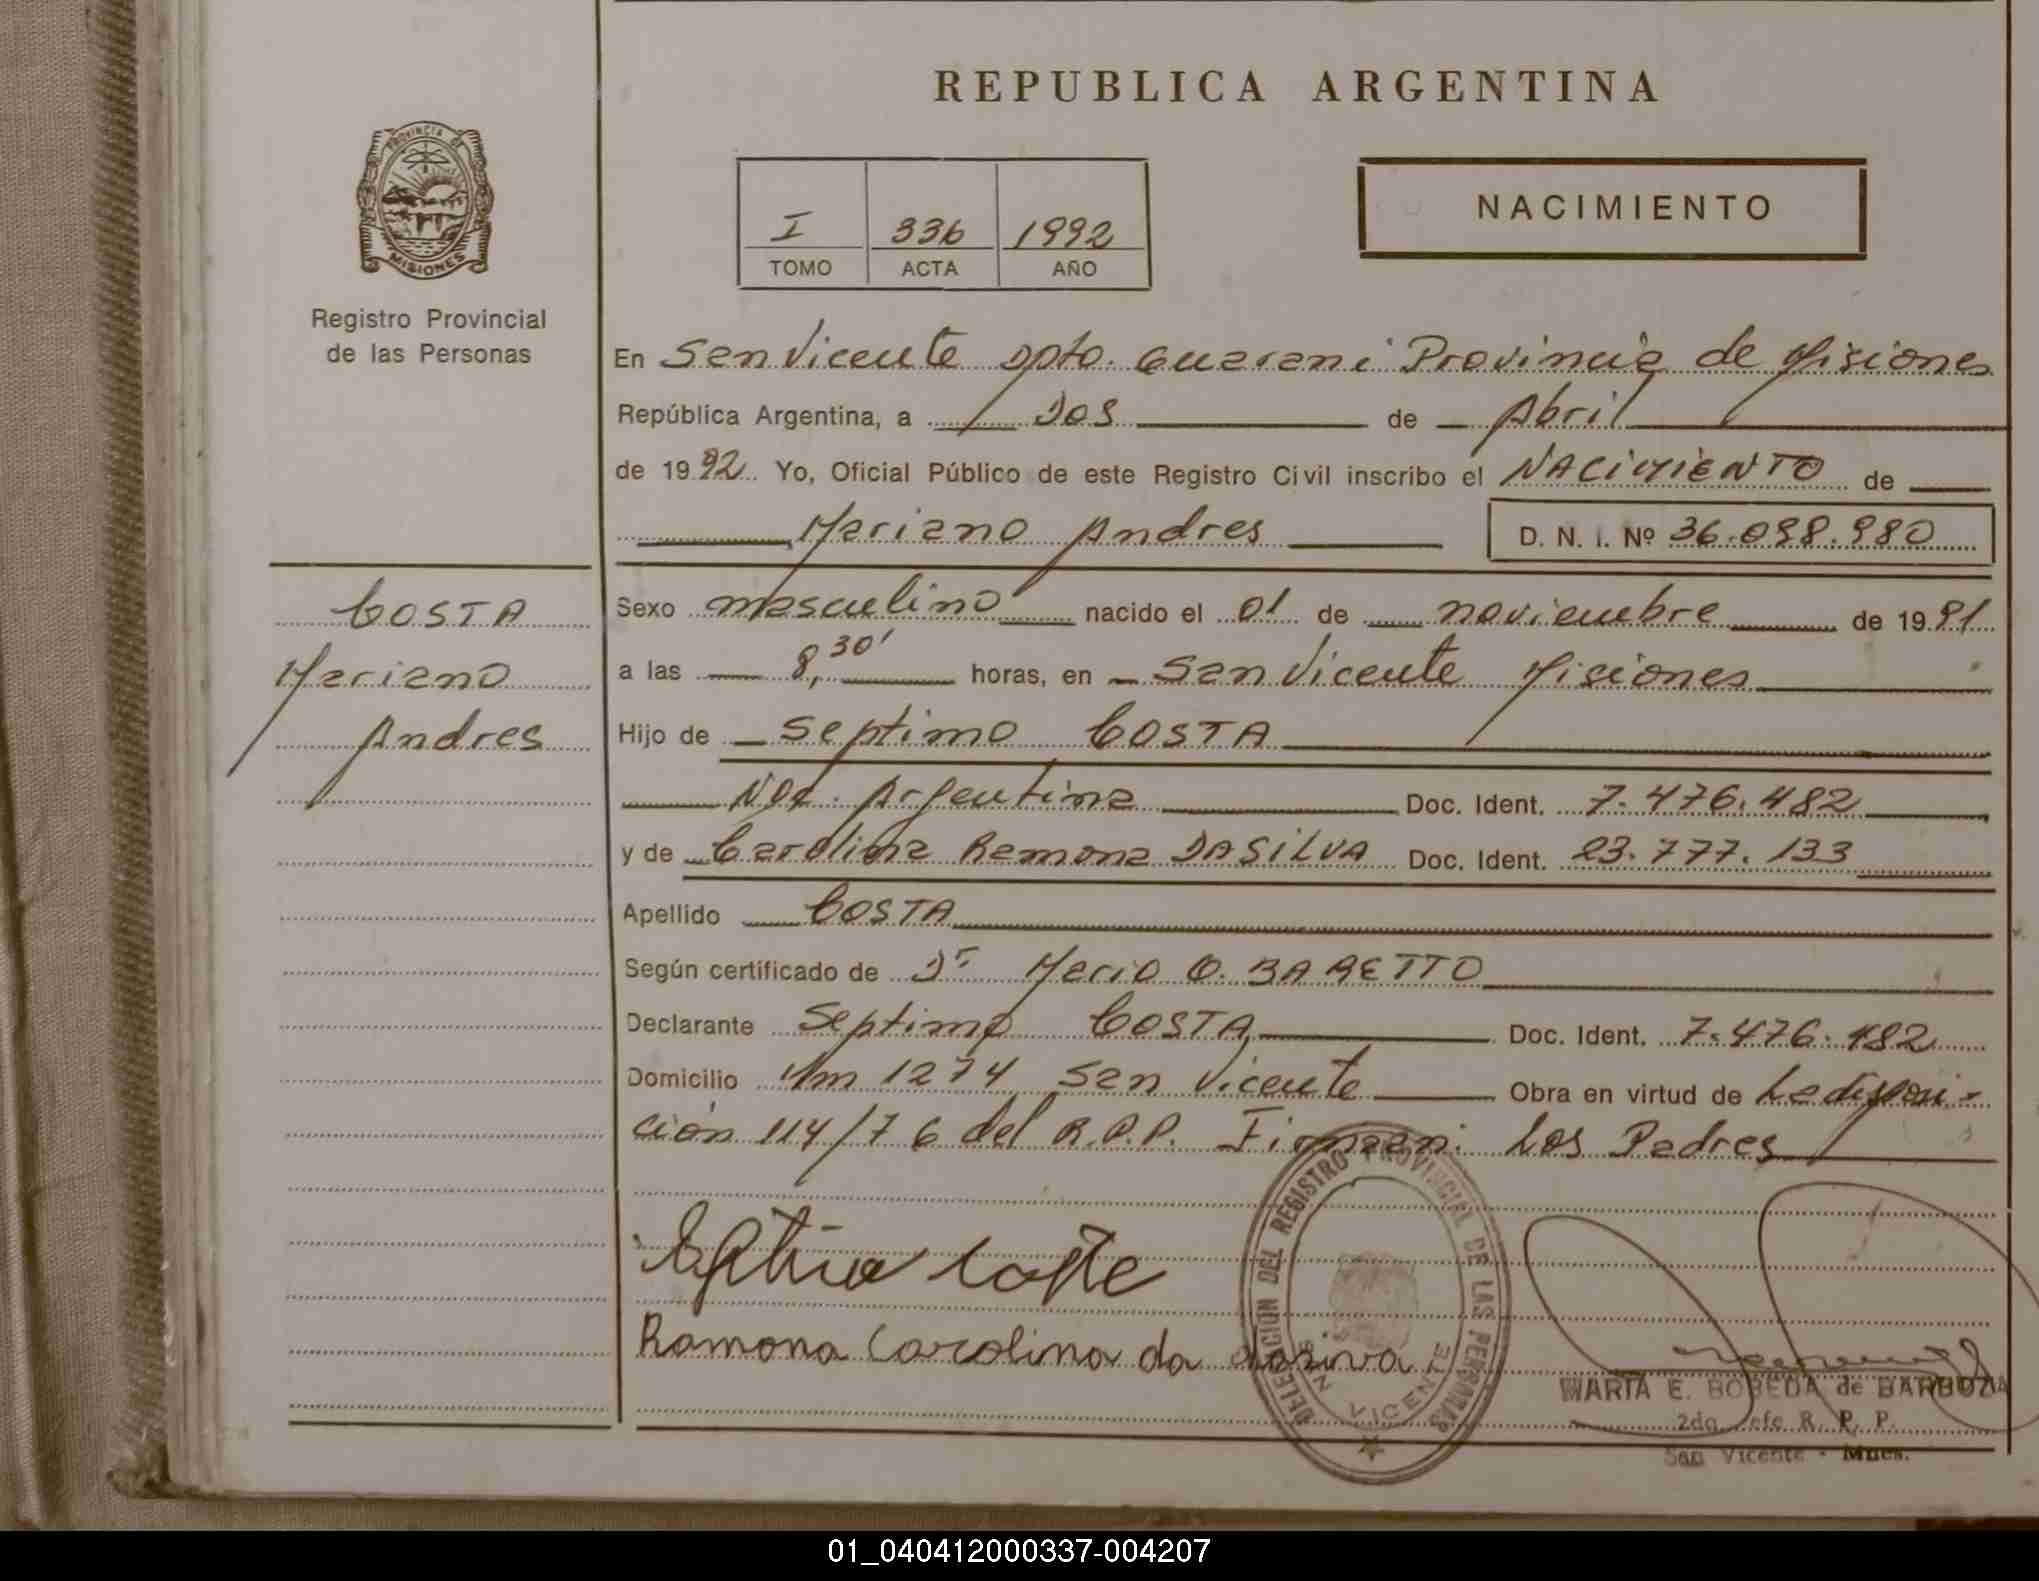 REPUBLICA ARGENTINA
PROVINCIA DE
MISIONES
Registro Provincial
de las Personas
I 336 1992
TOMO ACTA AÑO
NACIMIENTO
En San Vicente Dpto. Guarani Provincia de Misiones
República Argentina, a Dos de Abril
de 1992. Yo, Oficial Público de este Registro Civil inscribo el NACIMIENTO de
Mariano Andres D. N. I. Nº 36.098.980
COSTA
Mariano
Andres
Sexo masculino nacido el 01 de noviembre de 1991
a las 8,30' horas, en San Vicente Misiones
Hijo de Septimo COSTA
Nac. Argentina Doc. Ident. 7.476.482
y de Carolina Ramona DASILVA Doc. Ident. 23.777.133
Apellido COSTA
Según certificado de Dr Mario O. BARETTO
Declarante Septimo COSTA Doc. Ident. 7.476.482
Domicilio Km 1274 San Vicente Obra en virtud de La disposi-
ción 114/76 del R.P.P. Firman: Los Padres
Costa
Ramona Carolina da
DELEGACION DEL REGISTRO PROVINCIAL DE LAS PERSONAS
SAN VICENTE
MARIA E. BOBEDA de BARBOZA
2da. Jefe R. P. P.
San Vicente - Mnes.
01_040412000337-004207